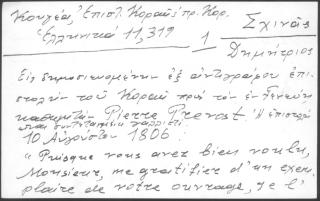 Κουγέα, Ἐπιστ. Κοραῆ πρ. Κορ.
Ἑλληνικά 11, 319
1
Σχινᾶς
Δημήτριος
Εἰς δημοσιευομένην ἐξ ἀντιγράφου ἐπι-
στολὴν τοῦ Κοραῆ πρὸς τὸν ἐν Γενεύῃ
καθηγητὴν Pierre Prevost. Ἡ ἐπιστολὴ
10 Αὐγούστου 1806:
"Puisque vous avez bien voulu,
Monsieur, me gratifier d'un exem-
plaire de votre ouvrage, je l'